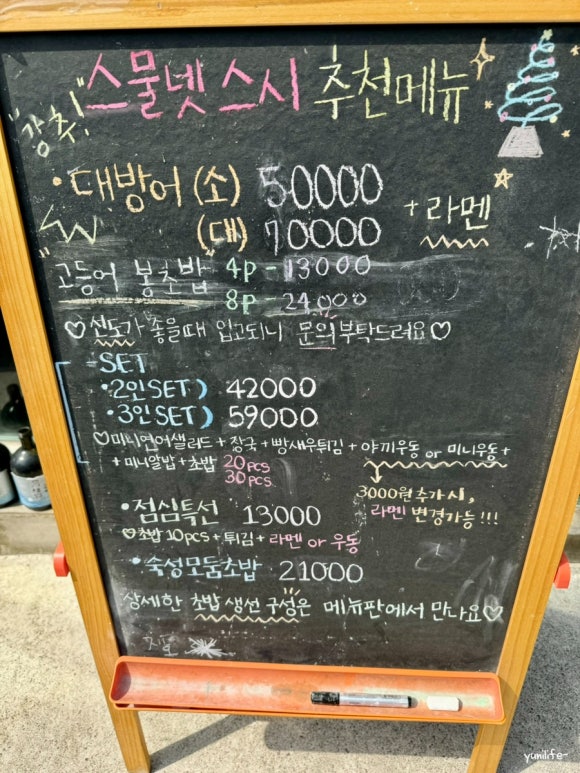 스물넷 스시 추천메뉴
"강추!"
• 대방어 (소) 50000
(대) 70000
+ 라멘
고등어 봉초밥 4p - 13000
8p - 24,000
♡ 선도가 좋을때 입고되니 문의부탁드려요♡
SET
• 2인SET) 42000
• 3인SET) 59000
♡미니연어샐러드 + 장국 + 빵새우튀김 + 야끼우동 or 미니우동 +
+ 미니알밥 + 초밥 20pcs
30pcs
3000원 추가시,
라멘 변경가능!!!
• 점심특선 13000
♡초밥 10pcs + 튀김 + 라멘 or 우동
• 숙성모둠초밥 21000
상세한 초밥 생선 구성은 메뉴판에서 만나요♡
yunilife-